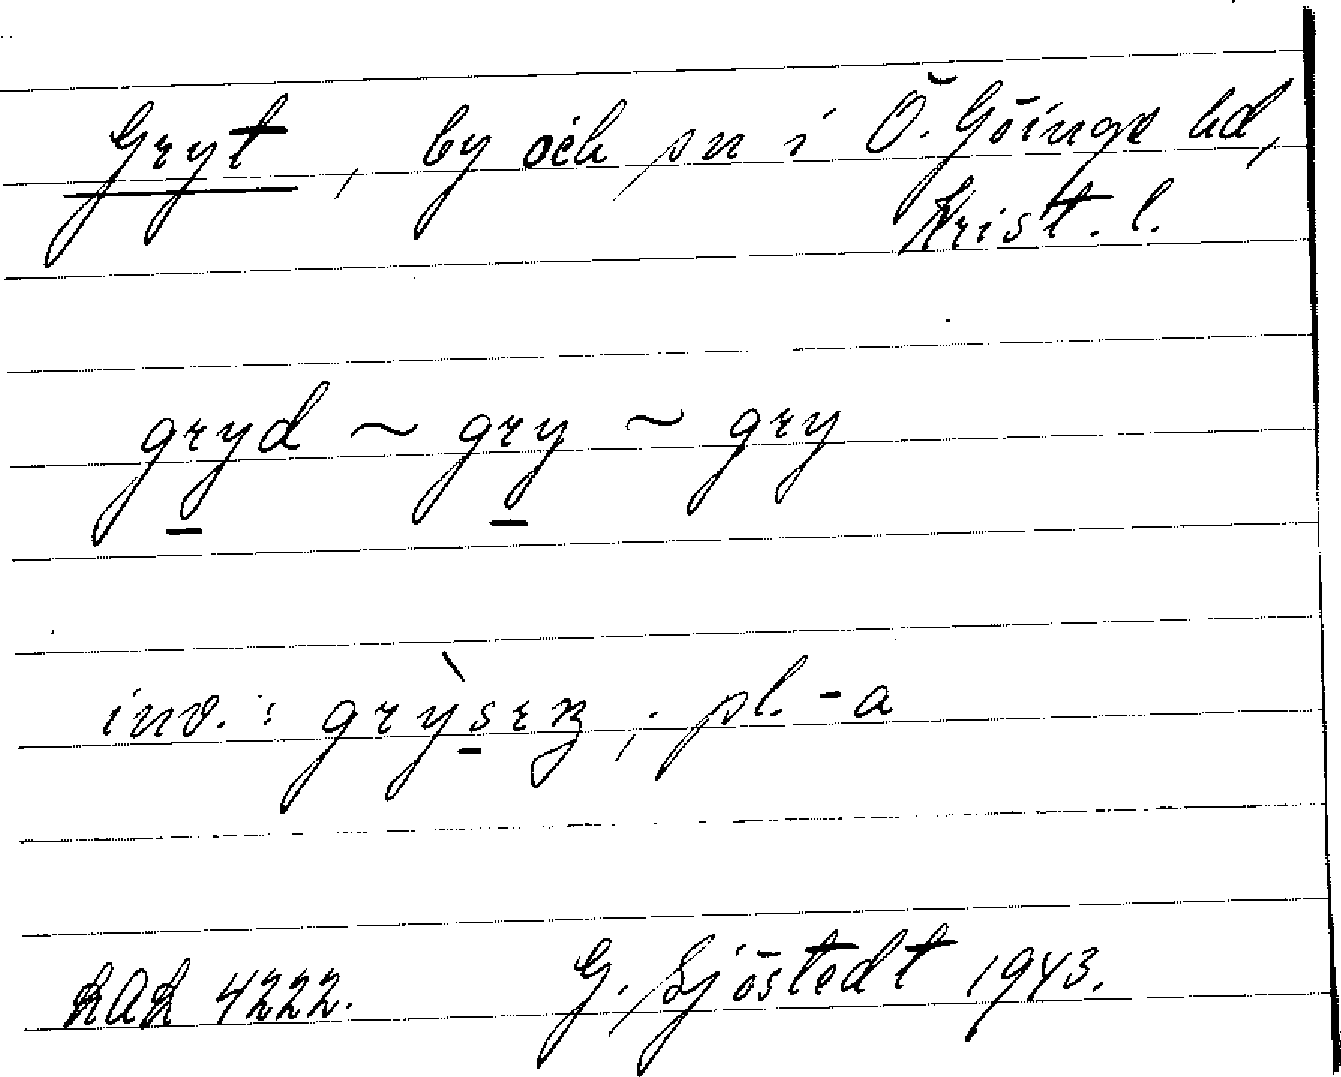 Gryt, by och sn i Ö. Göinge hd,
Krist. l.
gryd ~ gry ~ gry
inv.: grỳsrz, pl. -a
LAL 4222. G. Sjöstedt 1943.